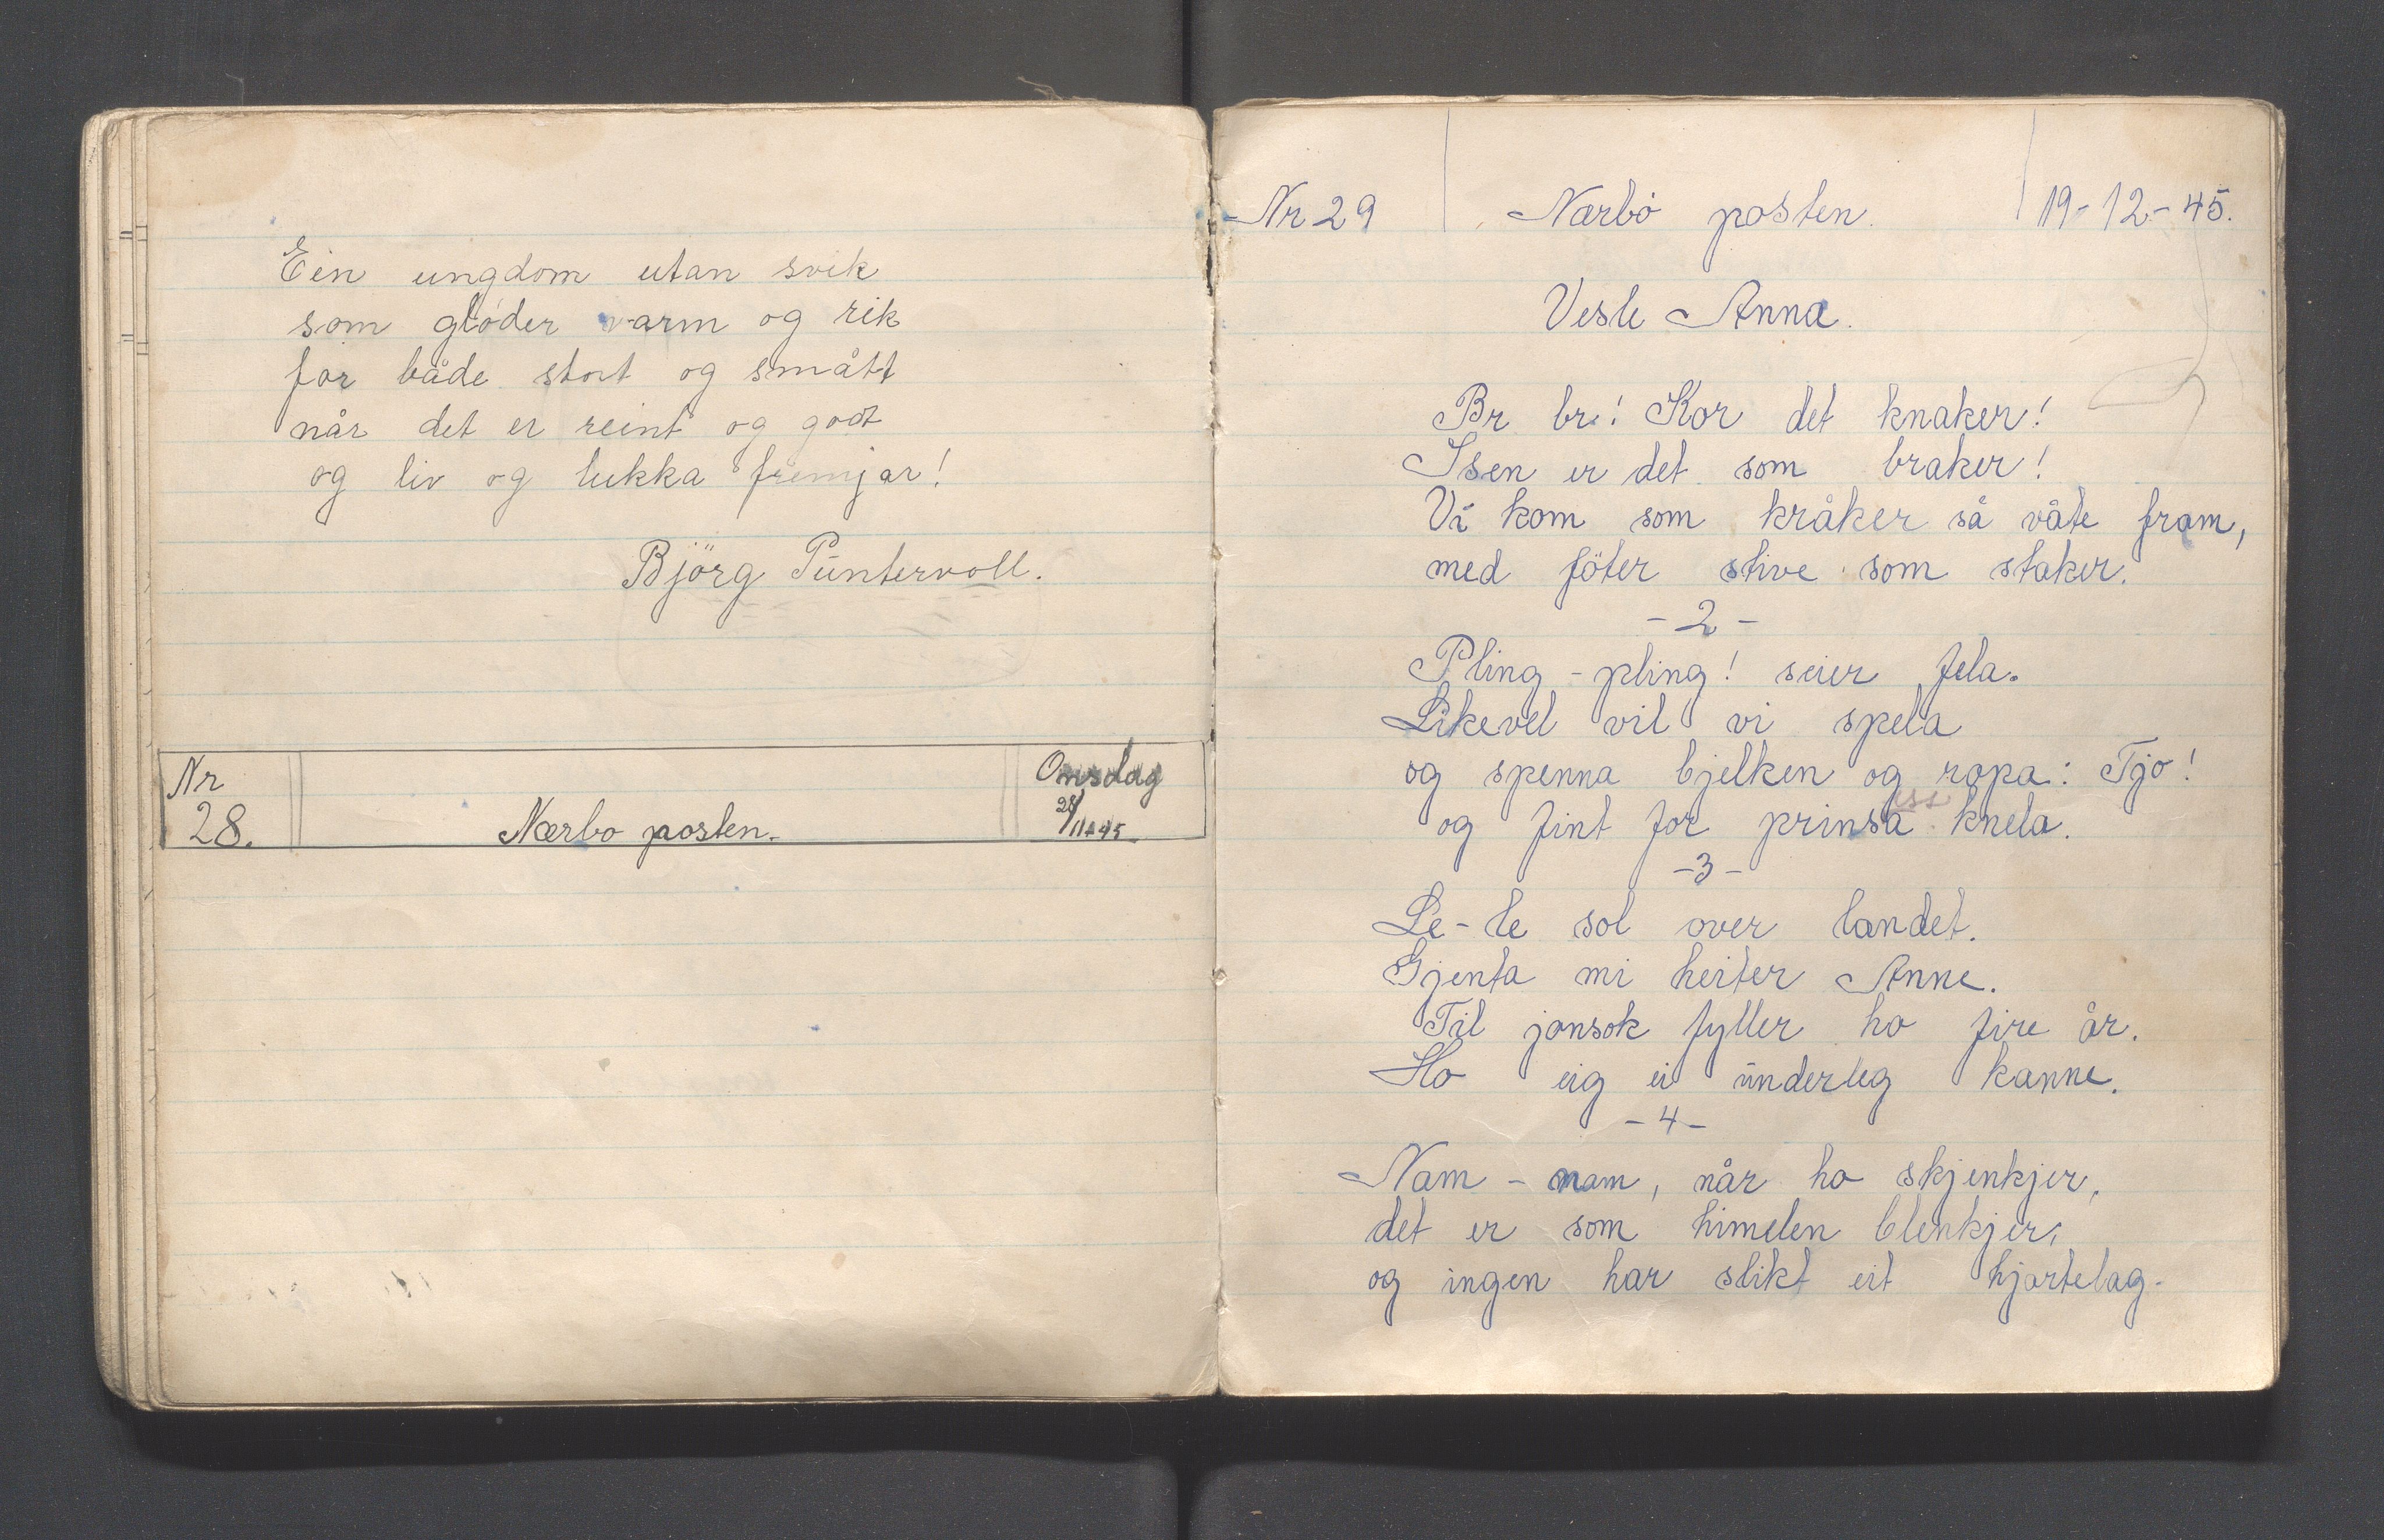 Ein ungdom utan svik
som glöder varm og rik
for både stort og smått
når det er reint og godt
og liv og lukka fremjar!
Björg Puntervoll.
Nr
28.
Nærbo posten.
Onsdag
28/11-45
Nr 29
Nærbö posten.
19-12-45.
Vesle Anna.
Br br! Kor det knaker!
Isen er det som braker!
Vi kom som kråker så våte fram,
med föter stive som staker.
-2-
Pling-pling! seier fela.
Likevel vil vi spela
og spenna bjelken og ropa: Tjo!
og fint for prinsessa knela.
-3-
Le-le sol over landet.
Gjenta mi heiter Anne.
Til jonsok fyller ho fire år.
Ho eig ei underleg kanne.
-4-
Nam-nam, når ho skjenkjer,
det er som himelen blenkjer,
og ingen har slikt eit hjartelag-